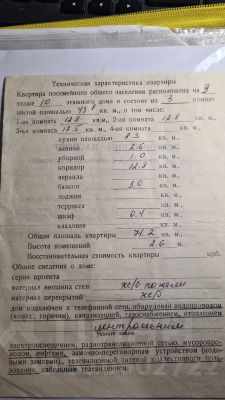 Техническая характеристика квартиры
Квартира посемейного общего заселения расположена на 9
этаже 10 этажного дома и состоит из 3 комнат
жилой площадью 43.1 кв. м., в том числе:
1-ая комната 12.8 кв.м., 2-ая комната 12.8 кв. м.,
3-ья комната 17.5 кв. м., 4-ая комната кв. м.,
кухни площадью 8.5 кв. м.,
ванной 2.6 кв. м.,
уборной 1.0 кв. м.,
коридор 12.8 кв. м.,
веранда кв. м.,
балкон 5.0 кв. м.,
лоджия кв. м.,
терраса кв. м.,
шкаф 0.4 кв. м.,
кладовая кв. м.,
Общая площадь квартиры 71.2 кв. м.,
Высота помещений 2.6 м.
Восстановительная стоимость квартиры крб.
Общие сведения о доме:
серия проекта
материал внешних стен ж/б панели
материал перекрытий ж/б
дом подключен к телефонной сети, оборудован водопроводом
(холод., горячим), канализацией, газоснабжением, отоплением
центральным
электроосвещением, радиотрансляционной сетью, мусоропро-
водом, лифтами, замочно-переговорным устройством (кодо-
выми замками), телевизионной антенной коллективного пользо-
вания, кабельным телевидением.